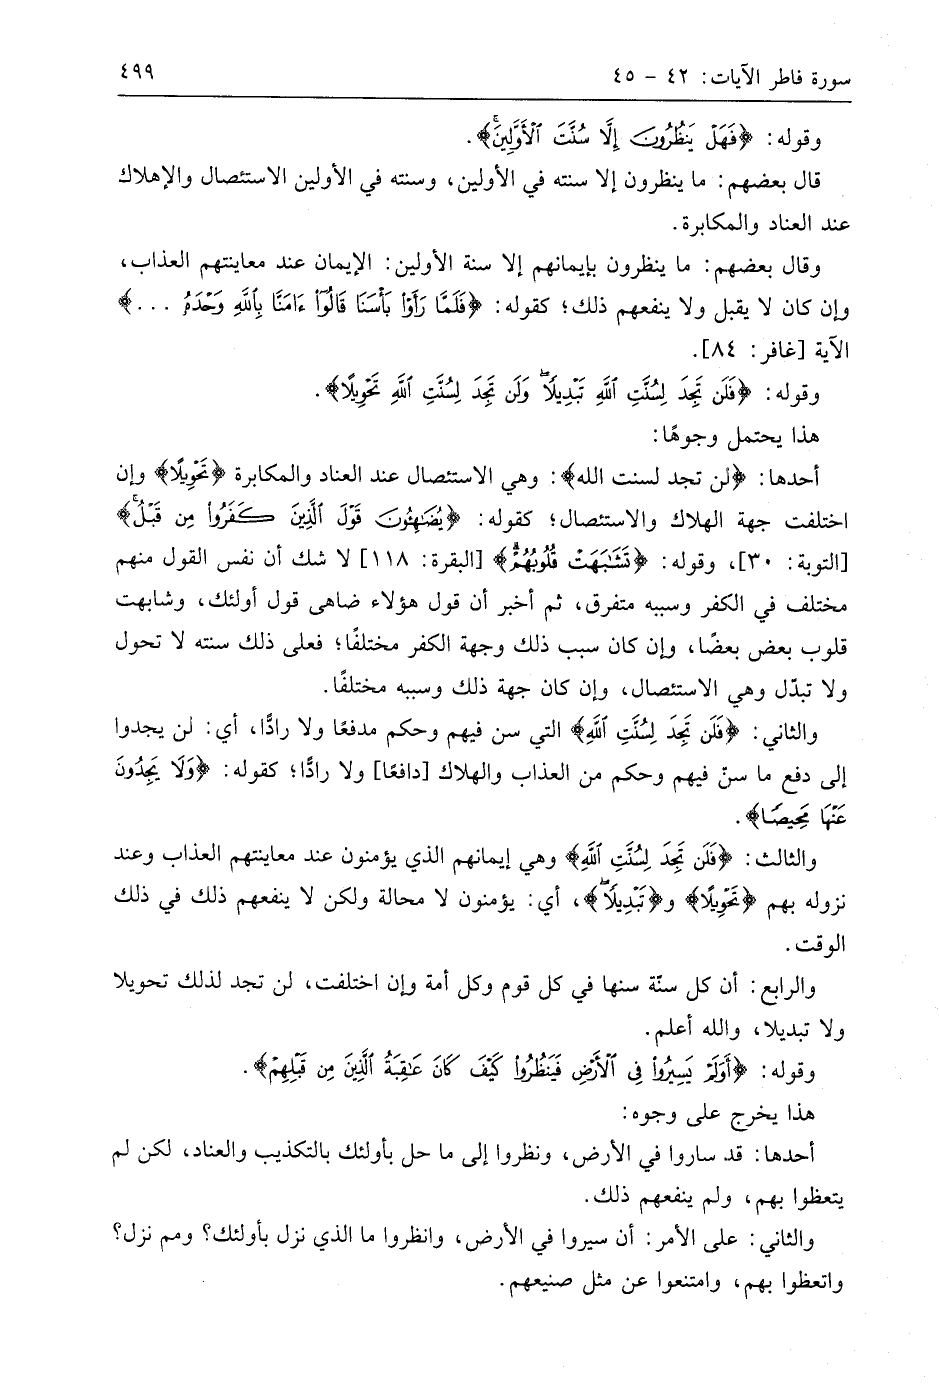 سورة فاطر الآيات: ٤٢ - ٤٥ ٤٩٩
وقوله: ﴿فَهَلْ يَنظُرُونَ إِلَّا سُنَّتَ ٱلْأَوَّلِينَۚ﴾.
قال بعضهم: ما ينظرون إلا سنته في الأولين، وسنته في الأولين الاستئصال والإهلاك
عند العناد والمكابرة.
وقال بعضهم: ما ينظرون بإيمانهم إلا سنة الأولين: الإيمان عند معاينتهم العذاب،
وإن كان لا يقبل ولا ينفعهم ذلك؛ كقوله: ﴿فَلَمَّا رَأَوْا۟ بَأْسَنَا قَالُوٓا۟ ءَامَنَّا بِٱللَّهِ وَحْدَهُۥ ...﴾
الآية [غافر: ٨٤].
وقوله: ﴿فَلَن تَجِدَ لِسُنَّتِ ٱللَّهِ تَبْدِيلًاۖ وَلَن تَجِدَ لِسُنَّتِ ٱللَّهِ تَحْوِيلًا﴾.
هذا يحتمل وجوهًا:
أحدها: ﴿لن تجد لسنت الله﴾: وهي الاستئصال عند العناد والمكابرة ﴿تَحْوِيلًا﴾ وإن
اختلفت جهة الهلاك والاستئصال؛ كقوله: ﴿يُضَٰهِـُٔونَ قَوْلَ ٱلَّذِينَ كَفَرُوا۟ مِن قَبْلُۚ﴾
[التوبة: ٣٠]، وقوله: ﴿تَشَٰبَهَتْ قُلُوبُهُمْۗ﴾ [البقرة: ١١٨] لا شك أن نفس القول منهم
مختلف في الكفر وسببه متفرق، ثم أخبر أن قول هؤلاء ضاهى قول أولئك، وشابهت
قلوب بعض بعضًا، وإن كان سبب ذلك وجهة الكفر مختلفًا؛ فعلى ذلك سنته لا تحول
ولا تبدّل وهي الاستئصال، وإن كان جهة ذلك وسببه مختلفًا.
والثاني: ﴿فَلَن تَجِدَ لِسُنَّتِ ٱللَّهِ﴾ التي سن فيهم وحكم مدفعًا ولا رادًّا، أي: لن يجدوا
إلى دفع ما سنّ فيهم وحكم من العذاب والهلاك [دافعًا] ولا رادًّا؛ كقوله: ﴿وَلَا يَجِدُونَ
عَنْهَا مَحِيصًا﴾.
والثالث: ﴿فَلَن تَجِدَ لِسُنَّتِ ٱللَّهِ﴾ وهي إيمانهم الذي يؤمنون عند معاينتهم العذاب وعند
نزوله بهم ﴿تَحْوِيلًا﴾ و﴿تَبْدِيلًاۖ﴾، أي: يؤمنون لا محالة ولكن لا ينفعهم ذلك في ذلك
الوقت.
والرابع: أن كل سنّة سنها في كل قوم وكل أمة وإن اختلفت، لن تجد لذلك تحويلا
ولا تبديلا، والله أعلم.
وقوله: ﴿أَوَلَمْ يَسِيرُوا۟ فِى ٱلْأَرْضِ فَيَنظُرُوا۟ كَيْفَ كَانَ عَٰقِبَةُ ٱلَّذِينَ مِن قَبْلِهِمْ﴾.
هذا يخرج على وجوه:
أحدها: قد ساروا في الأرض، ونظروا إلى ما حل بأولئك بالتكذيب والعناد، لكن لم
يتعظوا بهم، ولم ينفعهم ذلك.
والثاني: على الأمر: أن سيروا في الأرض، وانظروا ما الذي نزل بأولئك؟ ومم نزل؟
واتعظوا بهم، وامتنعوا عن مثل صنيعهم.